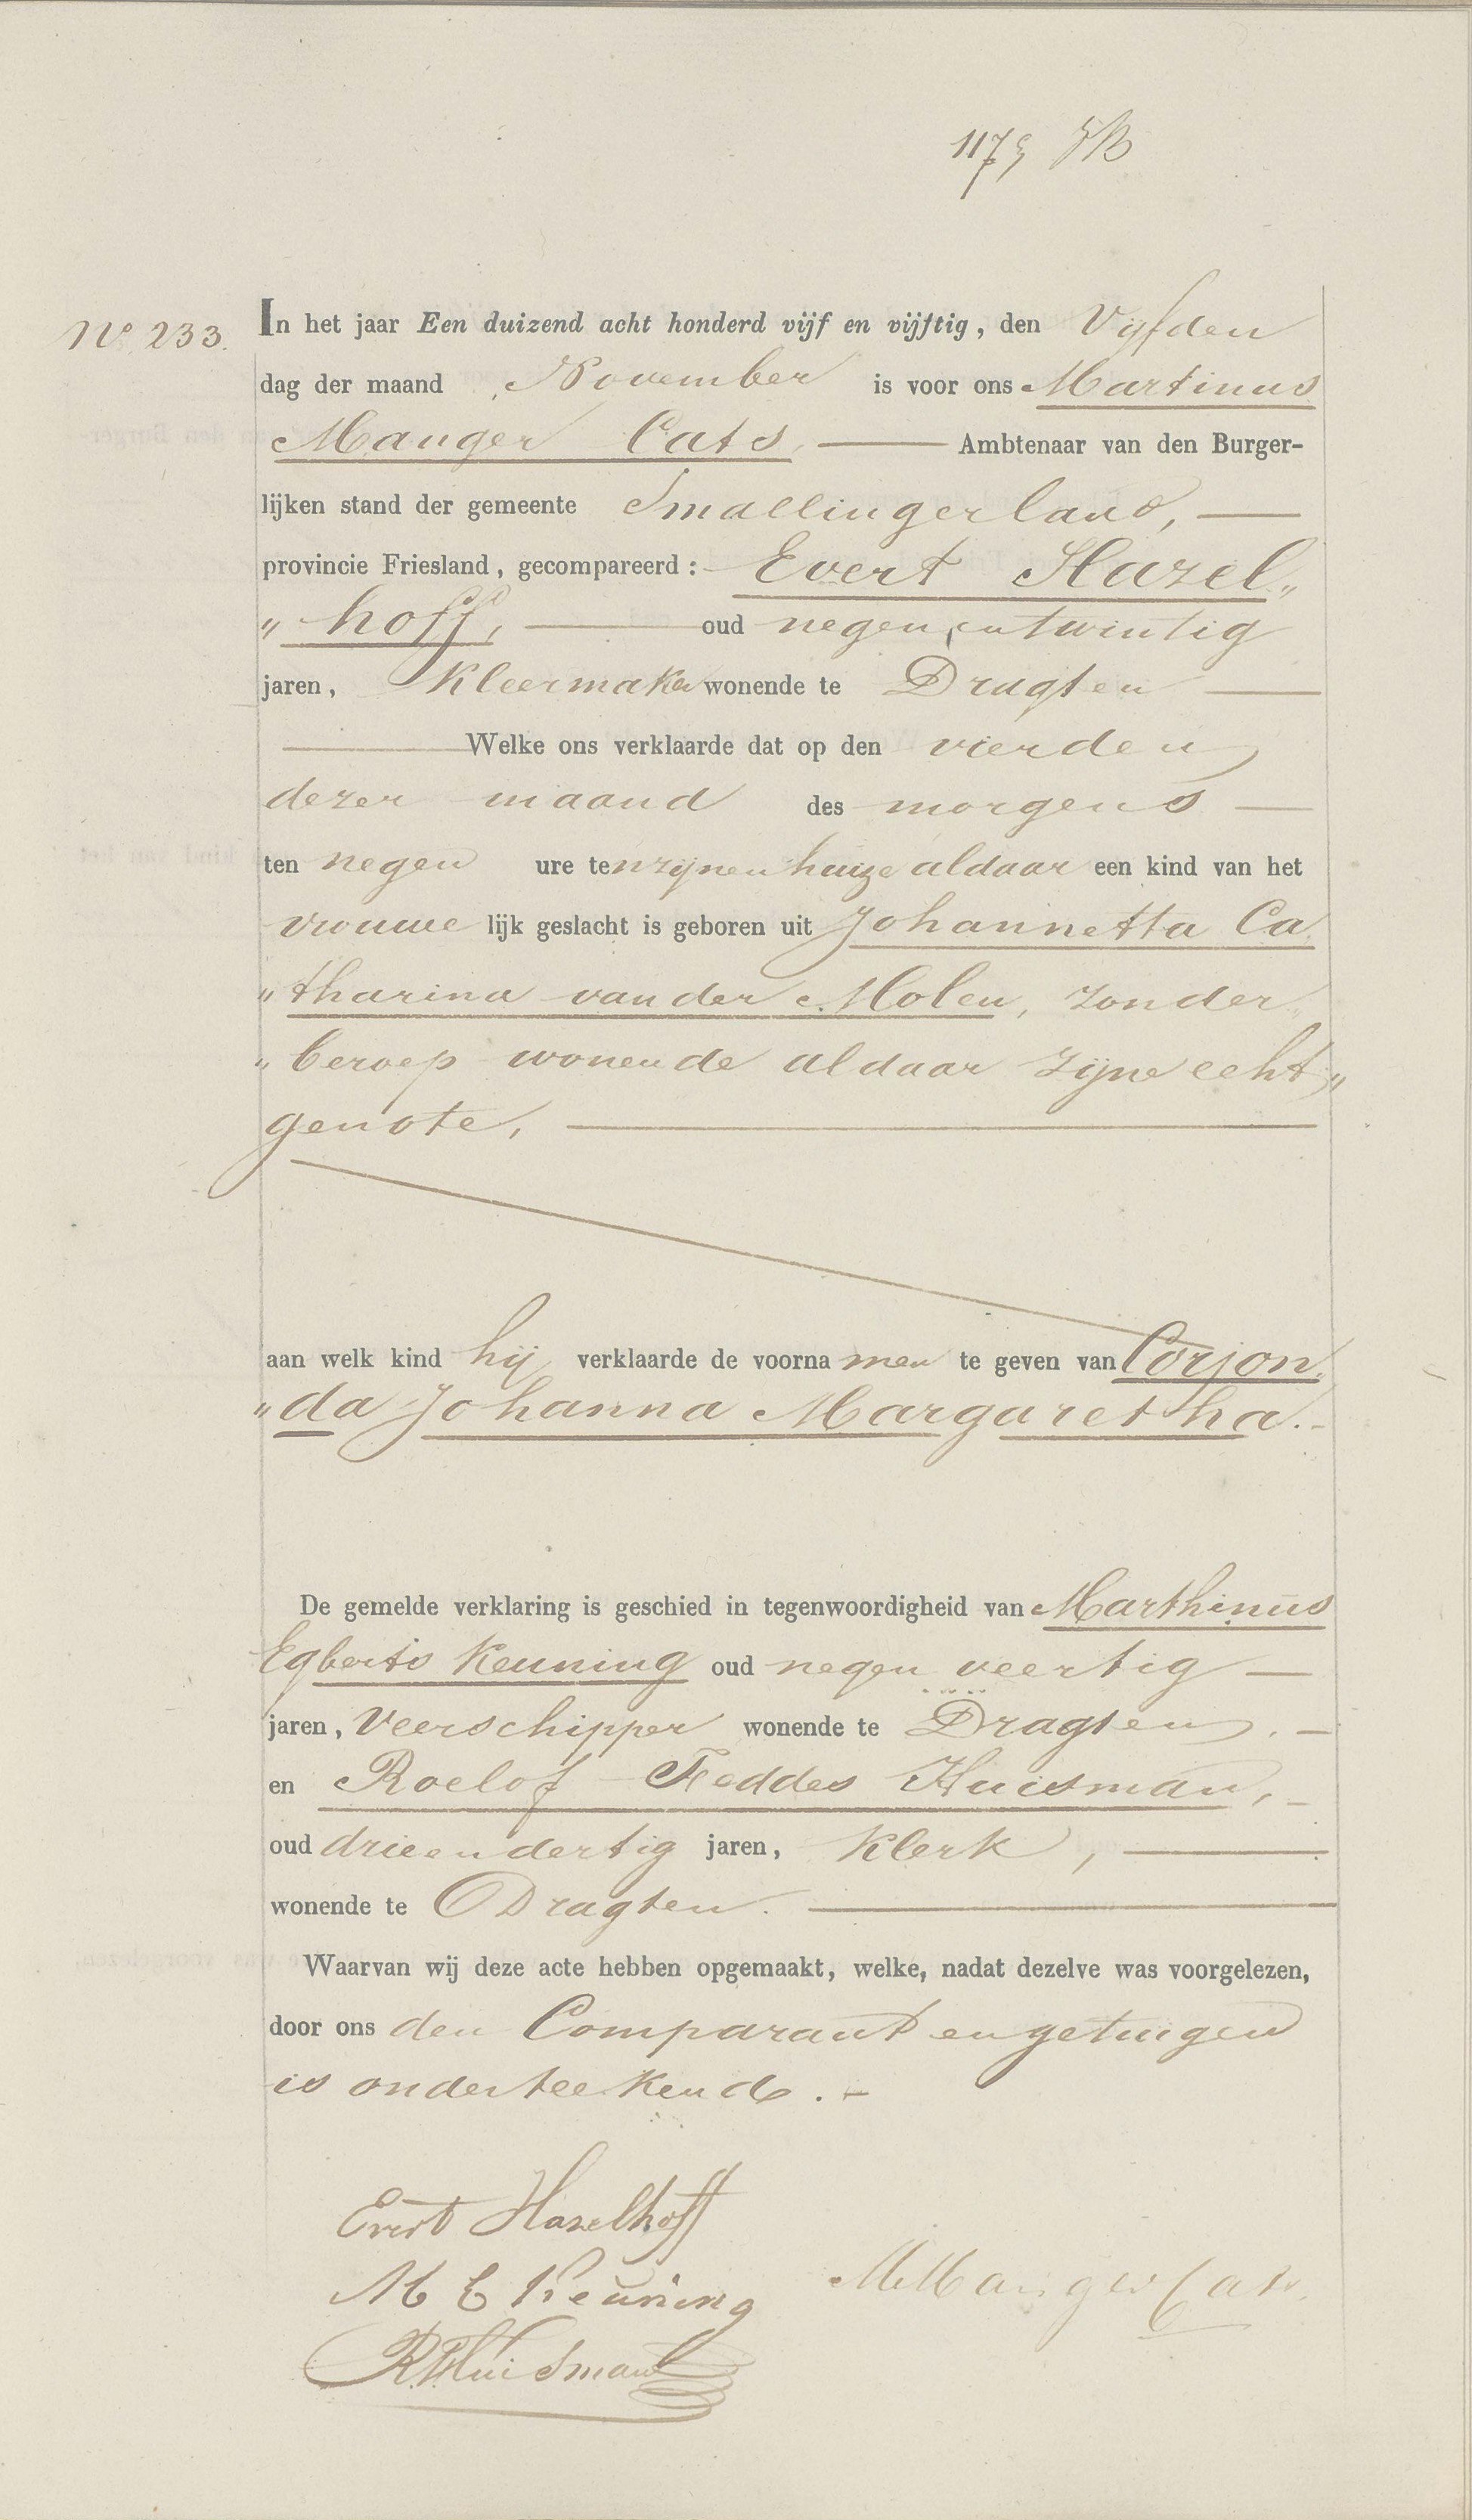 117
No. 233.
In het jaar Een duizend acht honderd vijf en vijftig, den Vijfden
dag der maand November is voor ons Martinus
Manger Cats, Ambtenaar van den Burger-
lijken stand der gemeente Smallingerland,
provincie Friesland, gecompareerd: Evert Hazel„
„hoff, oud negen en twintig
jaren, Kleermaker wonende te Dragten
Welke ons verklaarde dat op den vierden
dezer maand des morgens
ten negen ure ten zijnen huize aldaar een kind van het
vrouwelijk geslacht is geboren uit Johannetta Ca„
„tharina van der Molen, zonder
„beroep wonende aldaar zijne echt„
genote,
aan welk kind hij verklaarde de voornamen te geven van Corjon„
„da Johanna Margaretha.
De gemelde verklaring is geschied in tegenwoordigheid van Marthinus
Egberts Keuning oud negen veertig
jaren, Veerschipper wonende te Dragten.
en Roelof Feddes Huisman,
oud drieendertig jaren, Klerk,
wonende te Dragten.
Waarvan wij deze acte hebben opgemaakt, welke, nadat dezelve was voorgelezen,
door ons den Comparant en getuigen
is onderteekend.
Evert Hazelhoff
M E Keuning
M Manger Cats
R.F. Huisman